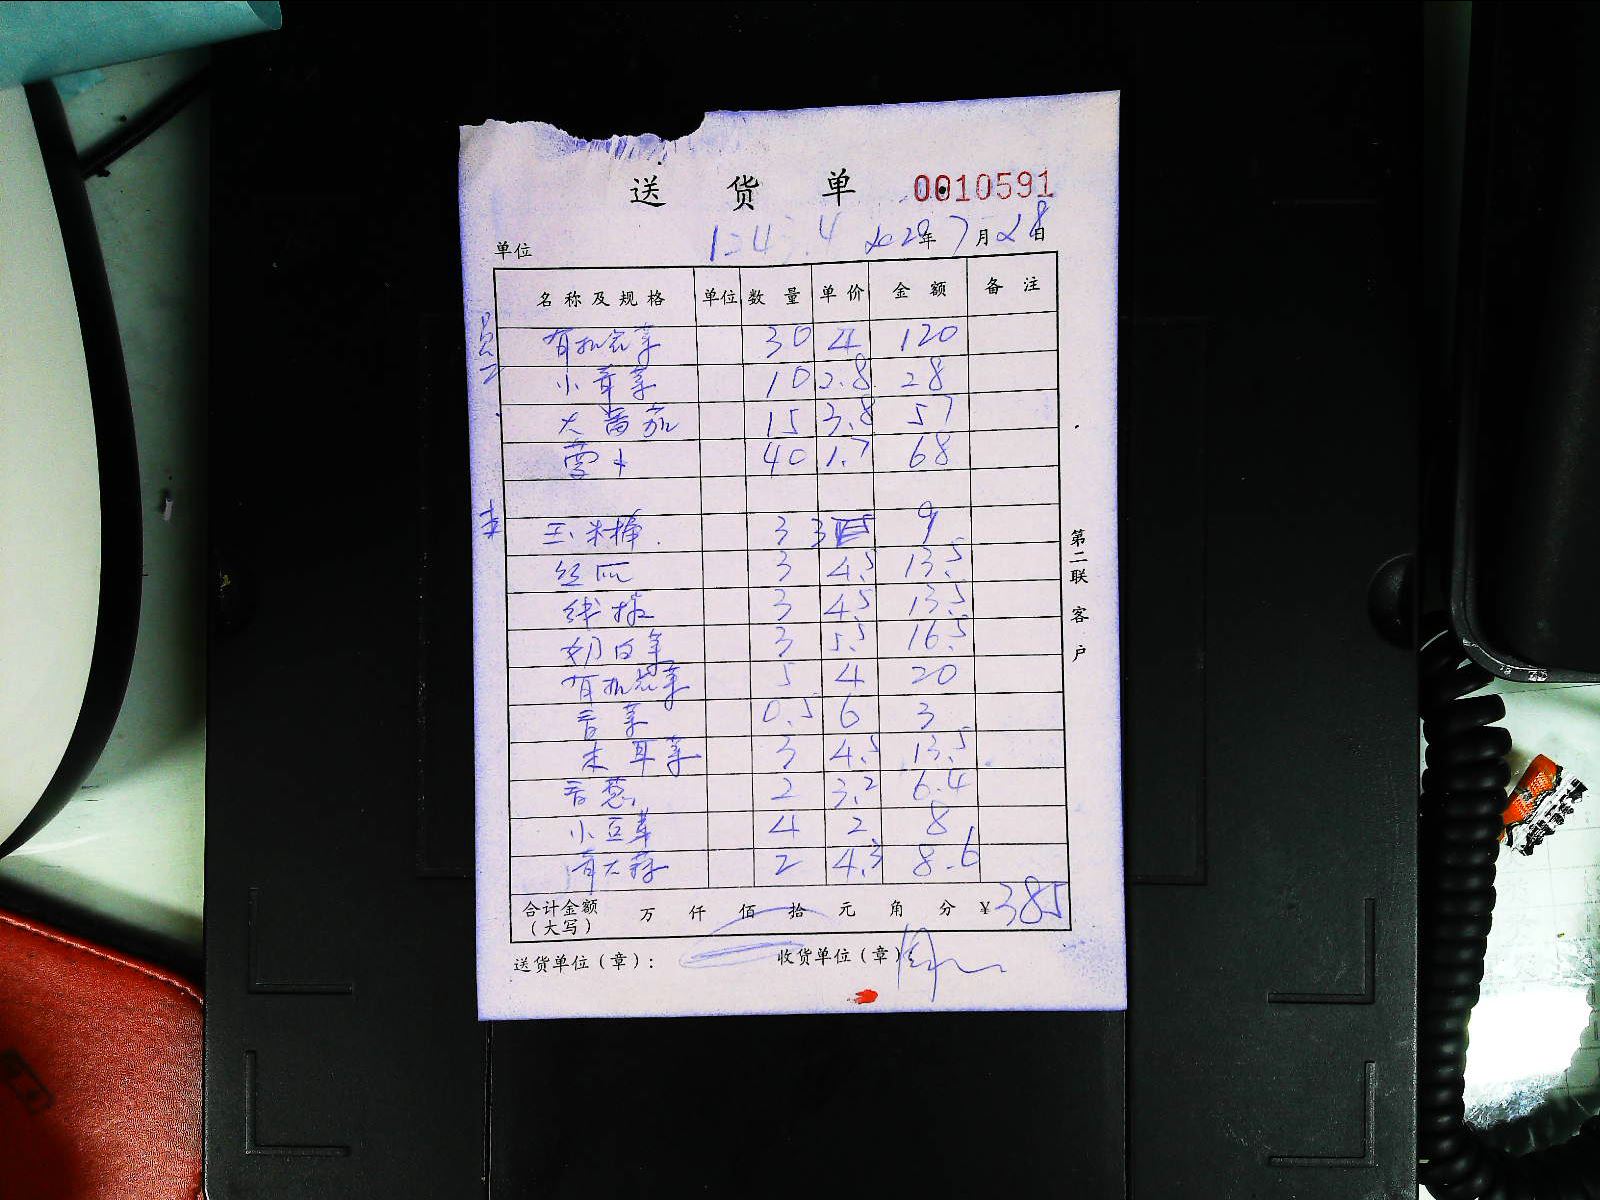 送货单 0010591
单位 2020年7月28日
名称及规格 单位 数量 单价 金额 备注
有机花菜 30 4 120
小芽菜 10 2.8 28
大番茄 15 3.8 57
萝卜 40 1.7 68
玉米棒 3 3 9
丝瓜 3 4.5 13.5
线椒 3 4.5 13.5
奶白菜 3 5.5 16.5
有机花菜 5 4 20
香菜 0.5 6 3
木耳菜 3 4.5 13.5
香葱 2 3.2 6.4
小豆芽 4 2 8
青大蒜 2 4.3 8.6
合计金额（大写） 万 仟 佰 拾 元 角 分 ¥385
送货单位（章）： 收货单位（章）
第二联 客户